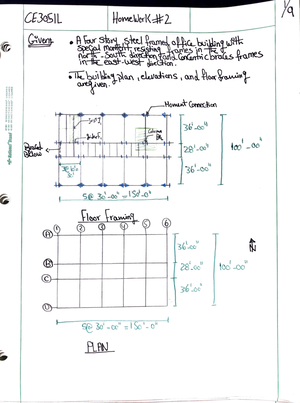 CE3051L
HomeWork #2
1/9
Given:
• A four story, steel framed office building with
special moment resisting frames in the
north-south direction and concentric braced frames
in the east-west direction.
• The building plan, elevations, and floor framing
are given.
Moment Connection
36'-00"
28'-00"
36'-00"
100'-00"
Braced
5@ 30'-00" = 150'-0"
Floor Framing
1 2 3 4 5 6
A
B
C
D
36'-00"
28'-00"
36'-00"
100'-00"
N
5@ 30'-00" = 150'-0"
PLAN